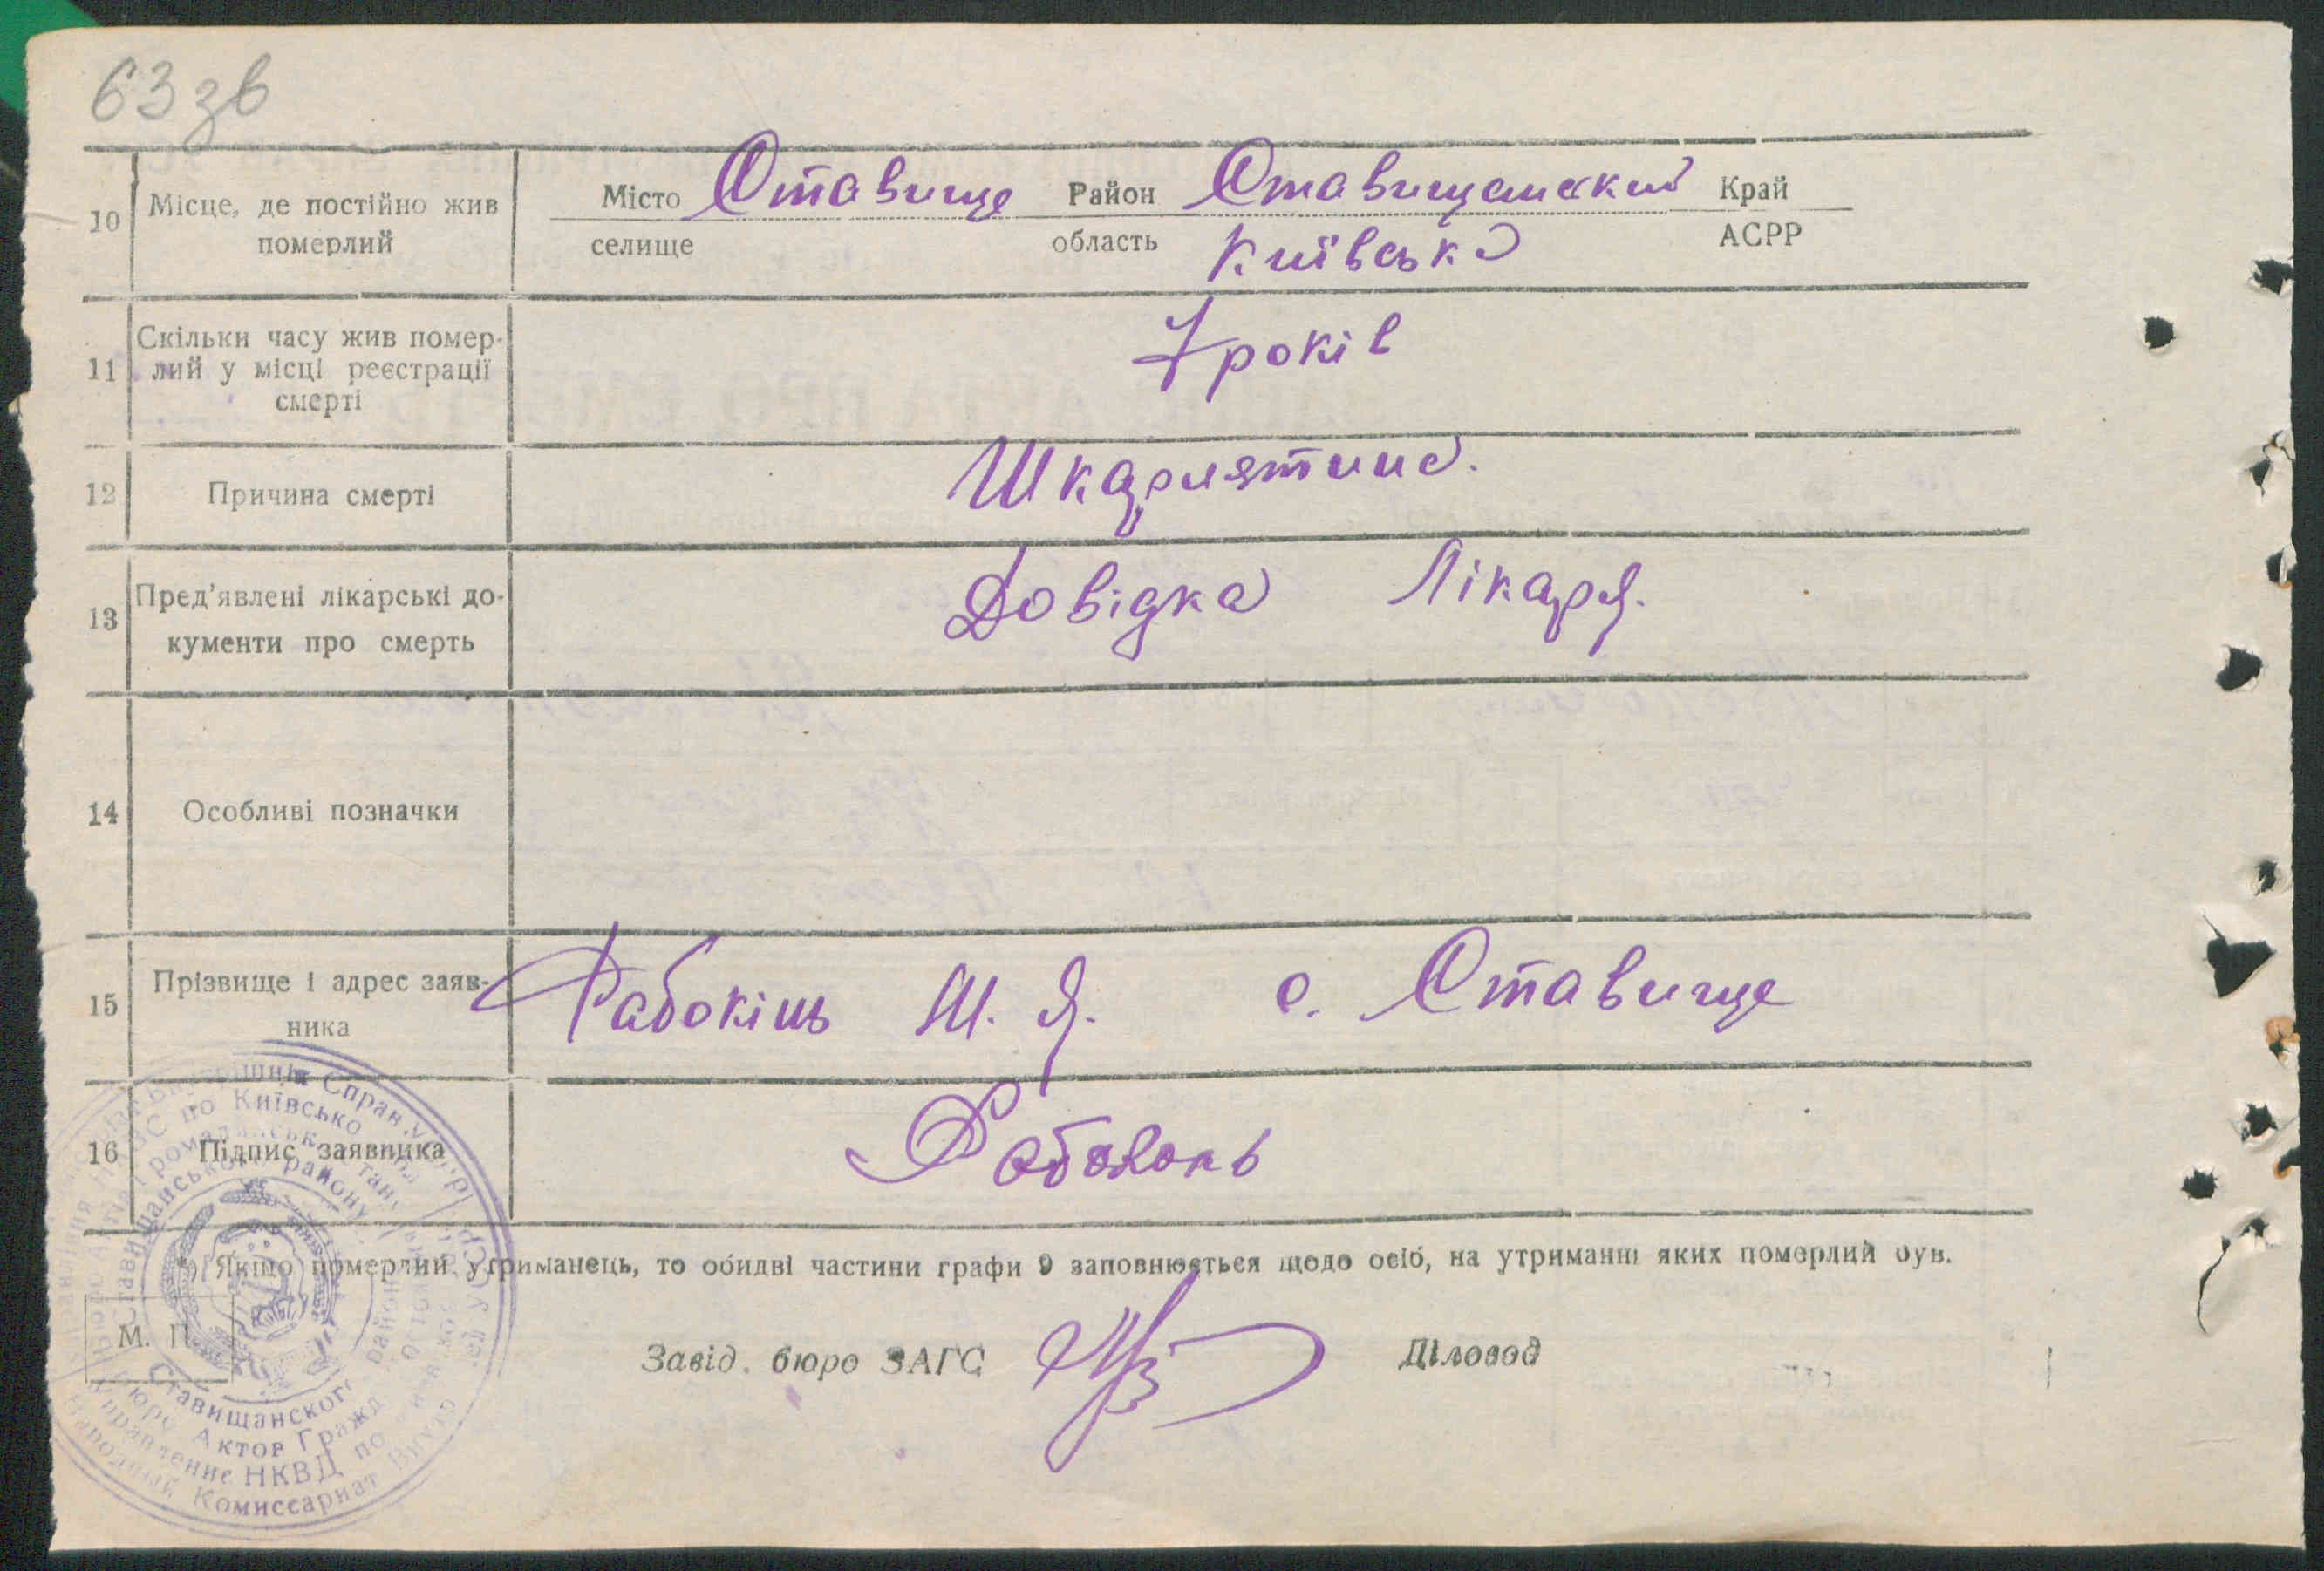 63 зв
10 Місце, де постійно жив померлий
Місто Ставище Район Ставищанский Край
селище область Київська АСРР
11 Скільки часу жив помер-
лий у місці реєстрації
смерті
7 років
12 Причина смерті Шкарлятина.
13 Пред'явлені лікарські до-
кументи про смерть
Довідка Лікаря.
14 Особливі позначки
15 Прізвище і адрес заяв-
ника
Ш. Я. с. Ставище
16 Підпис заявника
*) Якщо померлий утриманець, то обидві частини графи 9 заповнюється щодо осіб, на утриманні яких померлий був.
М. П.
Завід. бюро ЗАГС Діловод
Справ
по Київсько
Ставищанського району
Ставищанского
Бюро Актов Гражд
Управление НКВД по
Народный Комиссариат Внутр